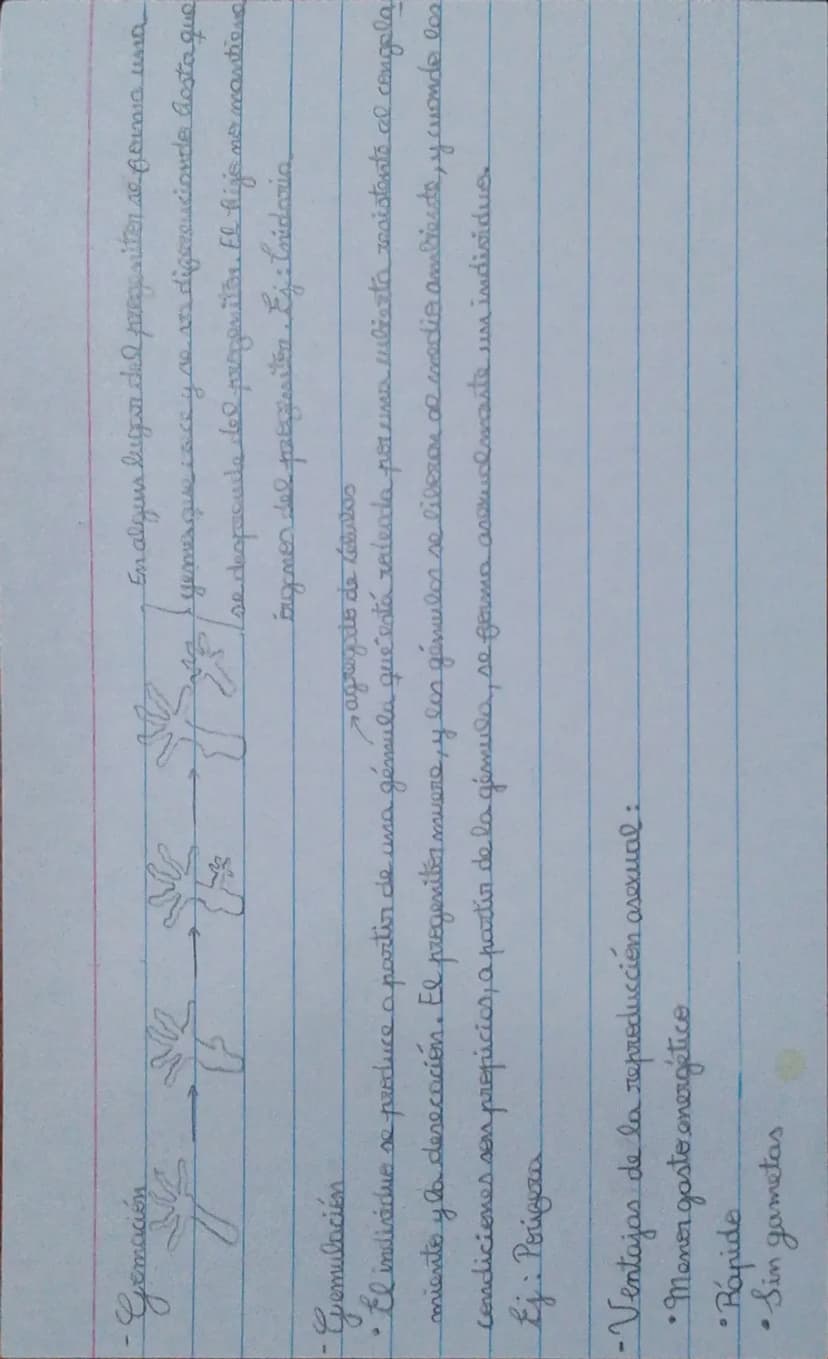 - Gemación
En algun lugar del progenitor se forma una
yema que crece y se va diferenciando hasta que
se desprende del progenitor. El hijo no mantiene
órganos del progenitor. Ej: Cnidaria
- Gemulación
→ agregado de células
• El individuo se produce a partir de una gémula que está rodeada por una cubierta resistente al congela
miento y la desecación. El progenitor muere, y las gémulas se liberan al medio ambiente, y cuando las
condiciones son propicias, a partir de la gémula, se forma asexualmente un individuo.
Ej: Porifera
- Ventajas de la reproducción asexual:
• Menor gasto energético
• Rápido
• Sin gametas